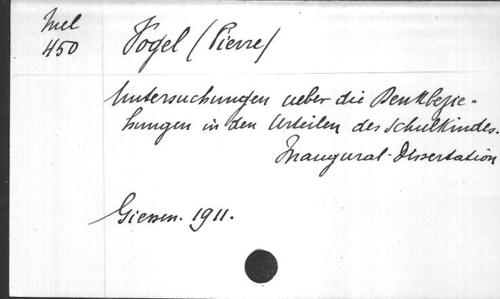 Mel
450
Vogel (Pierre)
Untersuchungen ueber die Denkbezie-
hungen in den Urteilen des Schulkindes.
Inaugural-Dissertation
Giessen. 1911.